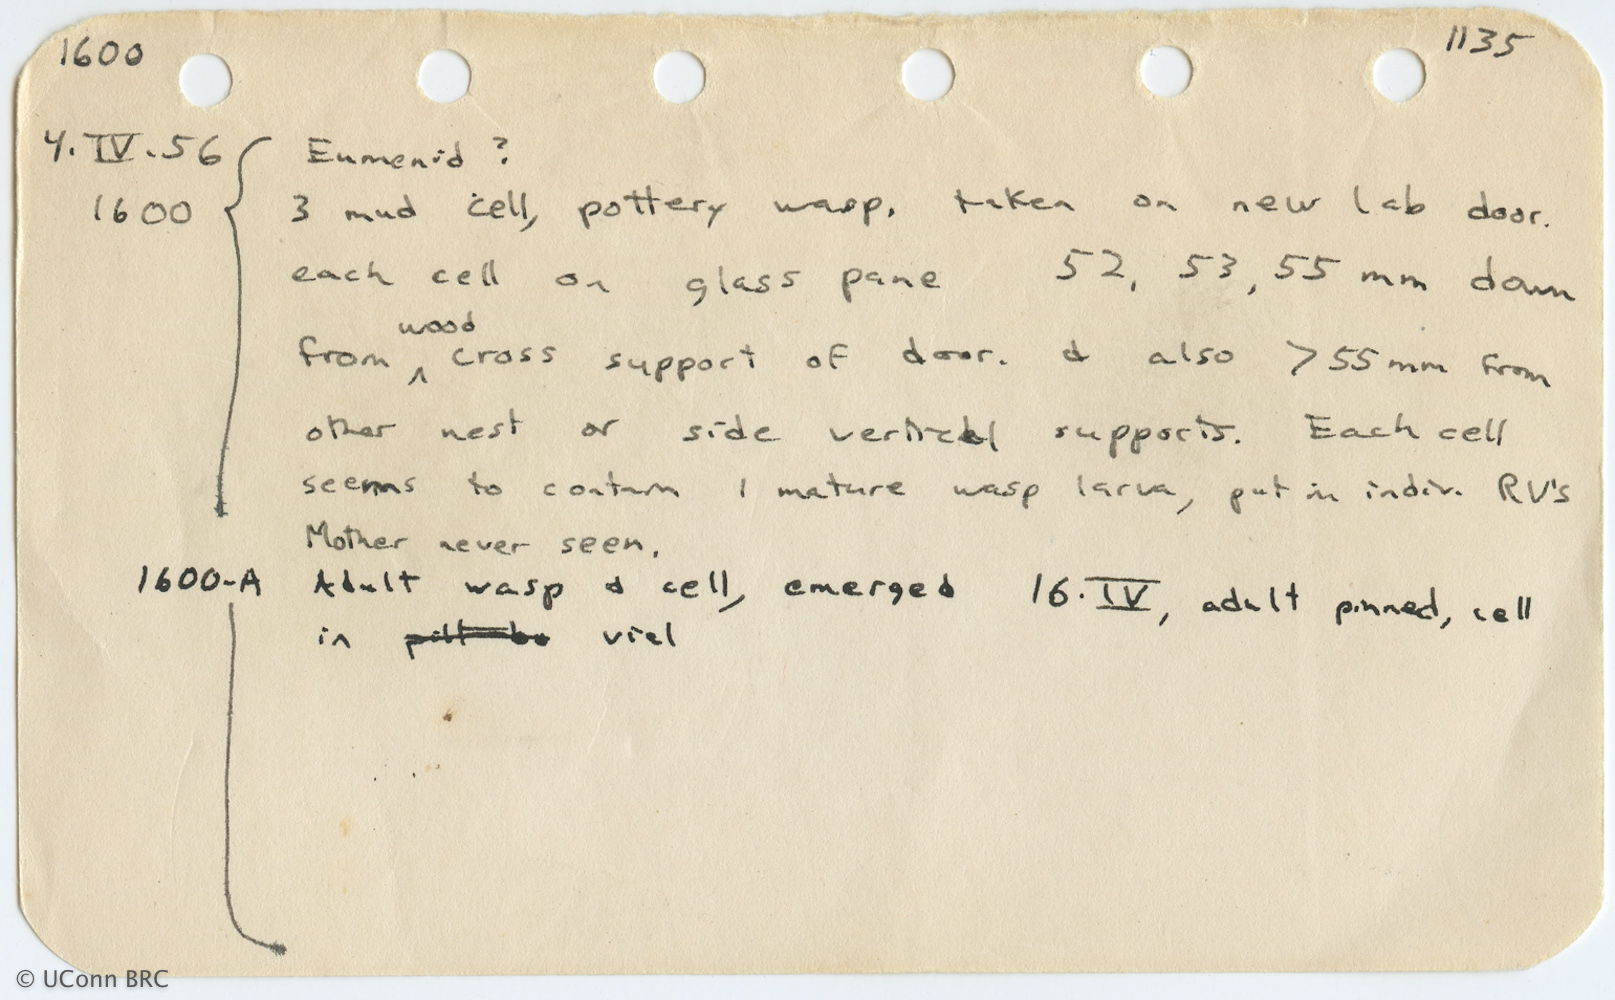 1600 1135
4.IV.56 Eumenid?
1600 3 mud cell, pottery wasp. taken on new lab door.
each cell on glass pane 52, 53, 55 mm down
from wood cross support of door. & also >55mm from
other nest or side vertical supports. Each cell
seems to contain 1 mature wasp larva, put in indiv. RV's
Mother never seen.
1600-A Adult wasp & cell, emerged 16.IV, adult pinned, cell
in viel
© UConn BRC